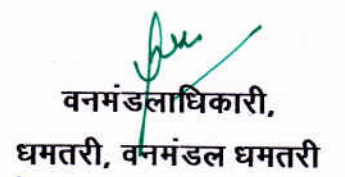 वनमंडलाधिकारी,
धमतरी, वनमंडल धमतरी